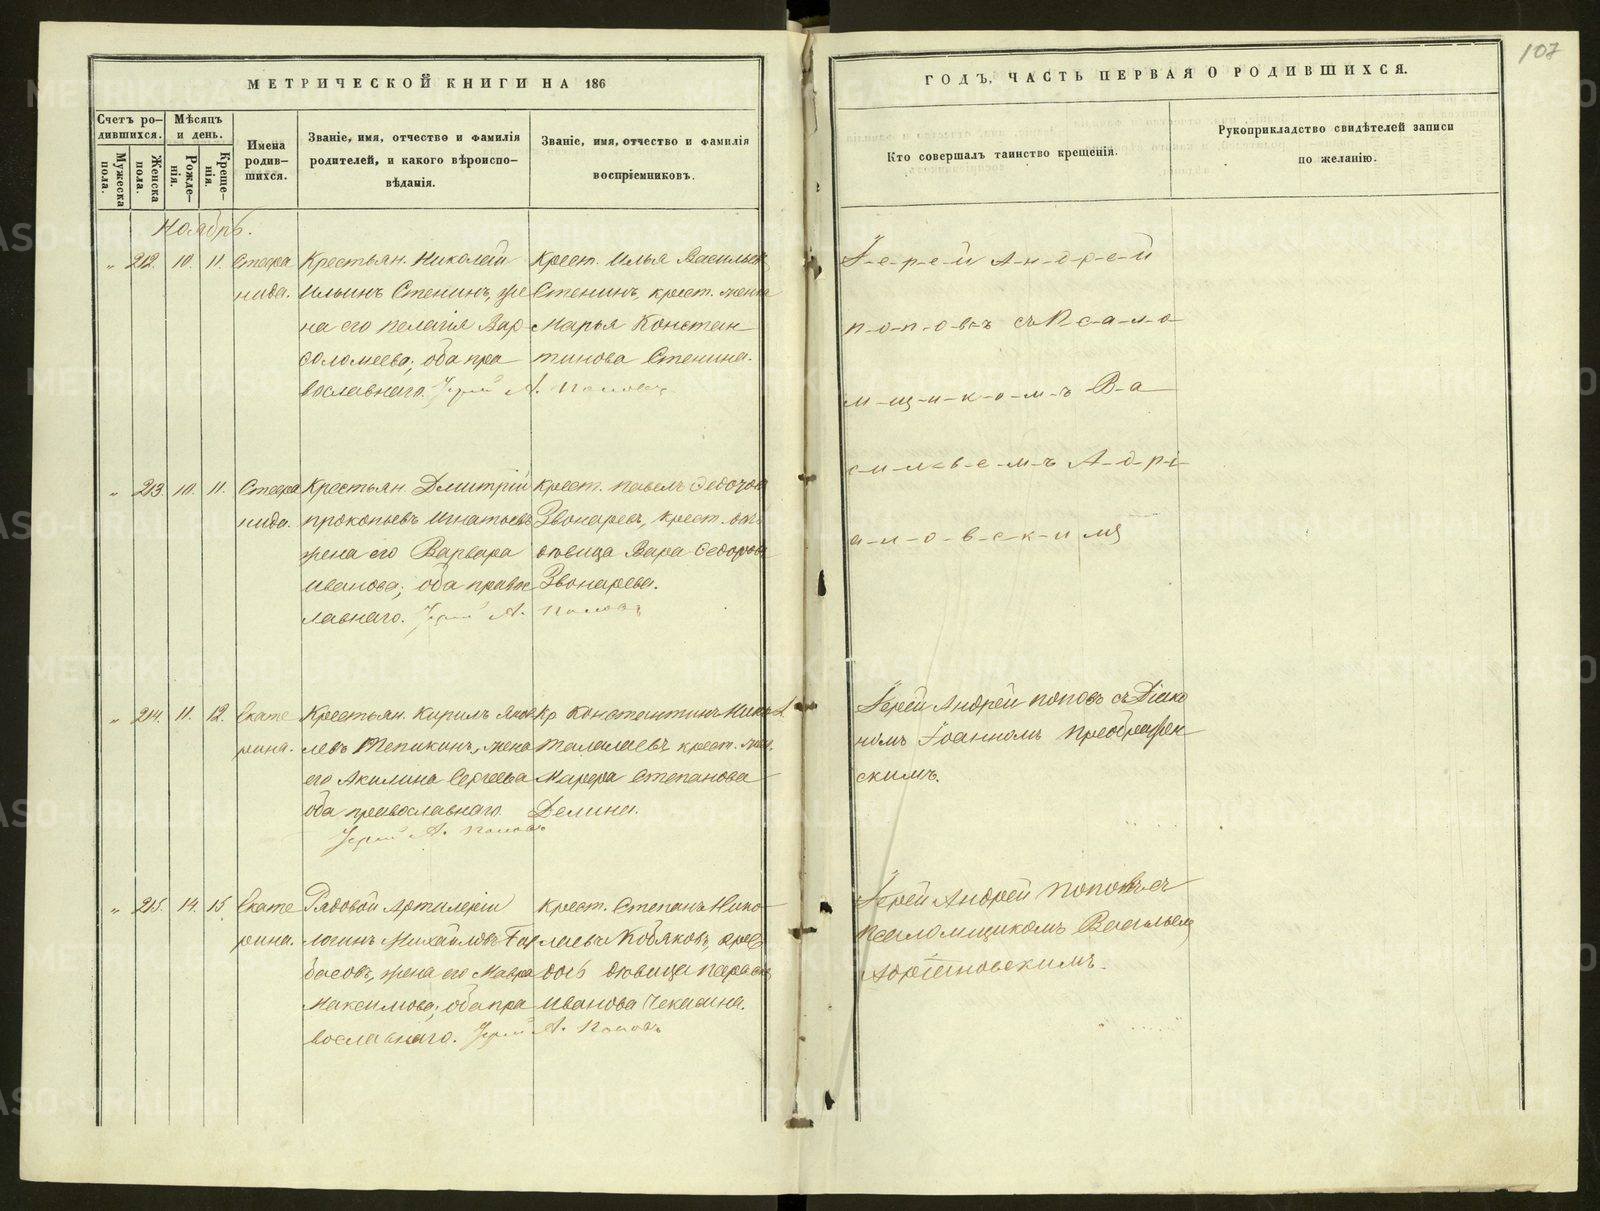 107
МЕТРИЧЕСКОЙ КНИГИ НА 186
ГОДЪ, ЧАСТЬ ПЕРВАЯ О РОДИВШИХСЯ.
Счетъ ро-
дившихся.
Мужеска
пола.
Женска
пола.
Мѣсяцъ
и день.
Рожде-
нія.
Креще-
нія.
Имена
родив-
шихся.
Званіе, имя, отчество и фамилія
родителей, и какого вѣроиспо-
вѣданія.
Званіе, имя, отчество и фамилія
воспріемниковъ.
Кто совершалъ таинство крещенія.
Рукоприкладство свидѣтелей записи
по желанію.
Ноябрь.
" 212. 10. 11.
Крестьян. Николай
Ильинъ Стенинъ, же
на его Пелагія Вар
оба пра
вославнаго. Іерей А. Поповъ
Крест. Илья
Стенинъ, крест. женка
Марья Констан
тинова Стенина.
І-е-р-е-й А-н-д-р-е-й
п-о-п-о-в-ъ съ П-с-а-л-о
м-щ-и-к-о-м-ъ В-а
с-и-л-ь-е-м-ъ А-д-рі-
а-н-о-в-с-к-и-мъ
" 213. 10. 11.
Крестьян. Дмитрій
Прокопьевъ
жена его Варвара
Иванова; оба правос
лавнаго. Іерей А. Поповъ
крест. Павелъ
Звонаревъ, крест.
дѣвица
Звонарева.
" 214. 11. 12. Екате
рина.
Крестьян. Кирилъ
жена
его Акилина Сергѣева
оба православнаго.
Іерей А. Поповъ
Кр. Константинъ
Талалаевъ крест.
Марѳа Степанова
Делина.
Іерей Андрей Поповъ съ Діако
номъ Іоанномъ Преображен
скимъ.
" 215. 14. 15. Екате
рина.
Рядовой Артилеріи
Логинъ Михайловъ
басовъ, жена его Мавра
Максимова; оба пра
вославнаго. Іерей А. Поповъ
Крест. Степанъ Нико
лаевъ Кобяковъ,
дѣвица
Иванова
Іерей Андрей Поповъ съ
Псаломщикомъ Васильем
Адріановскимъ.